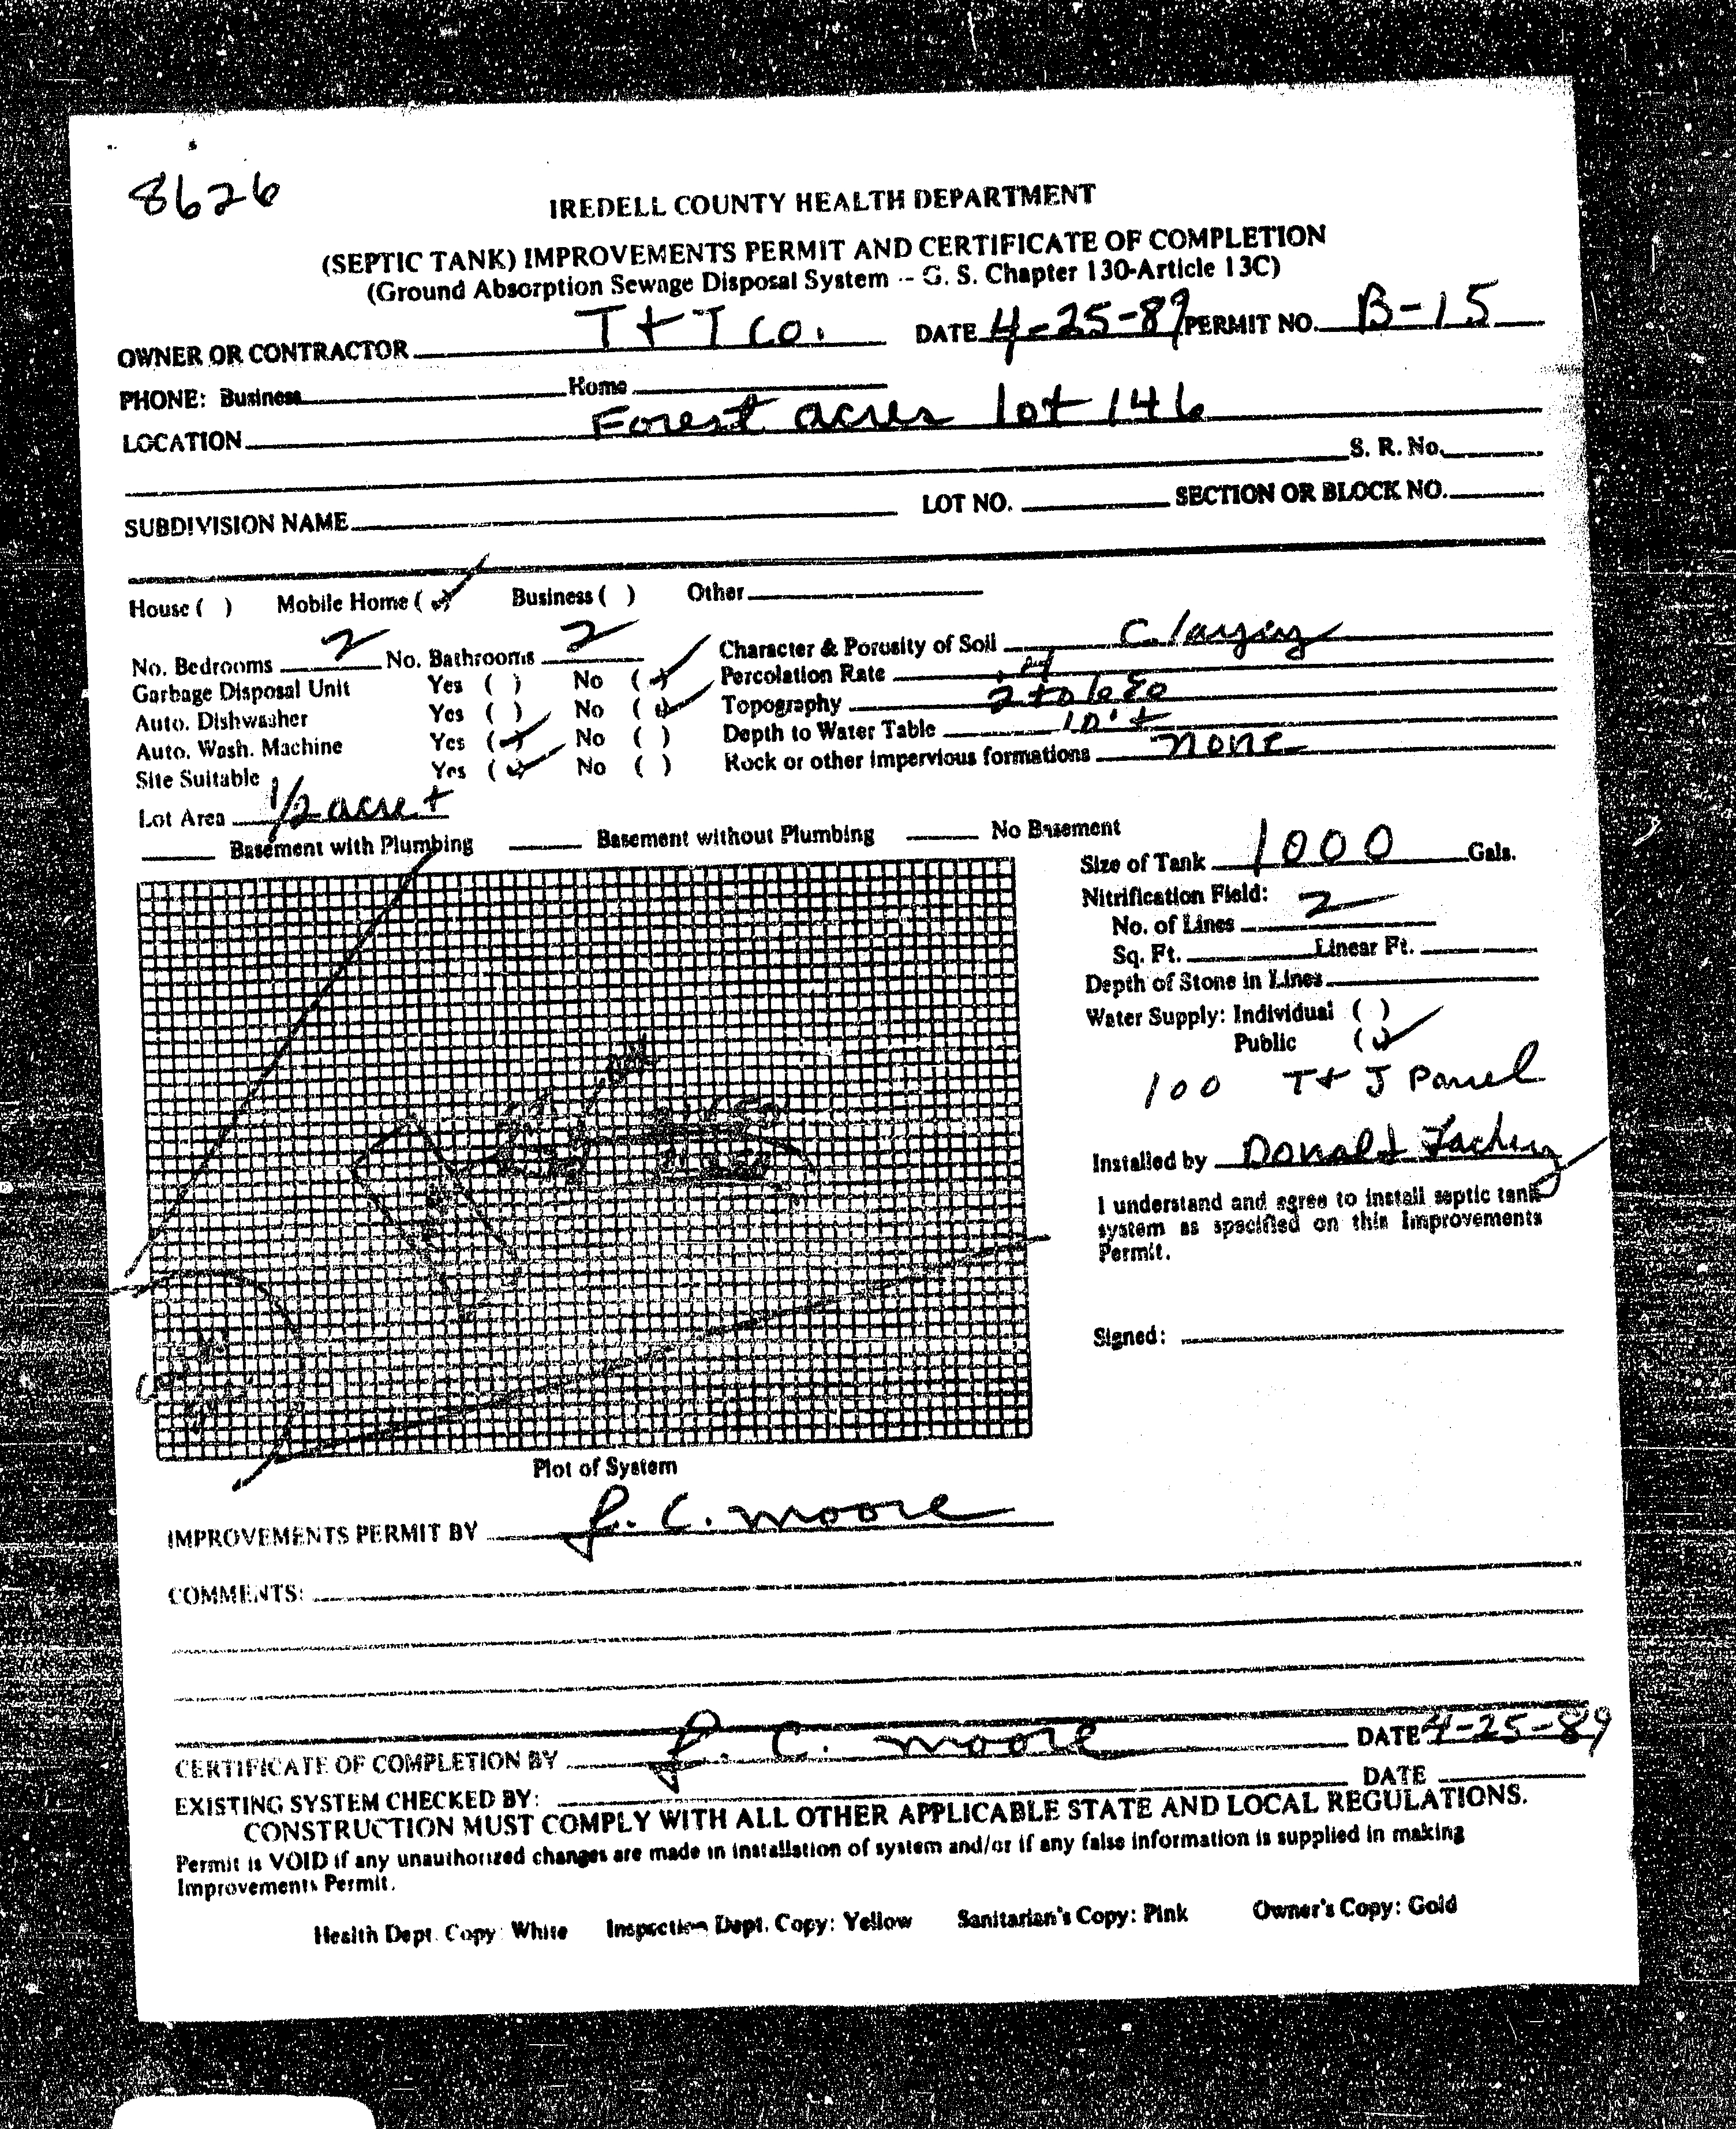 8626
IREDELL COUNTY HEALTH DEPARTMENT
(SEPTIC TANK) IMPROVEMENTS PERMIT AND CERTIFICATE OF COMPLETION
(Ground Absorption Sewage Disposal System -- G. S. Chapter 130-Article 13C)
OWNER OR CONTRACTOR T + T Co. DATE 4-25-89 PERMIT NO. B-15
PHONE: Business Home
LOCATION Forest acres lot 146
S. R. No.
SUBDIVISION NAME LOT NO. SECTION OR BLOCK NO.
House ( ) Mobile Home (✓) Business ( ) Other
No. Bedrooms 2 No. Bathrooms 2 Character & Porosity of Soil Clayey
Garbage Disposal Unit Yes ( ) No (✓) Percolation Rate .4
Auto. Dishwasher Yes ( ) No (✓) Topography 2 to 6%
Auto. Wash. Machine Yes (✓) No ( ) Depth to Water Table 10' +
Site Suitable Yes (✓) No ( ) Rock or other impervious formations none
Lot Area 1/2 acre +
Basement with Plumbing Basement without Plumbing No Basement
Size of Tank 1000 Gals.
Nitrification Field:
No. of Lines 2
Sq. Ft. Linear Ft.
Depth of Stone in Lines
Water Supply: Individual ( )
Public (✓)
100 T+J Panel
Installed by Donald
I understand and agree to install septic tank
system as specified on this Improvements
Permit.
Signed:
Plot of System
IMPROVEMENTS PERMIT BY J. C. Moore
COMMENTS:
CERTIFICATE OF COMPLETION BY J. C. Moore DATE 4-25-89
EXISTING SYSTEM CHECKED BY: DATE
CONSTRUCTION MUST COMPLY WITH ALL OTHER APPLICABLE STATE AND LOCAL REGULATIONS.
Permit is VOID if any unauthorized changes are made in installation of system and/or if any false information is supplied in making
Improvements Permit.
Health Dept. Copy: White Inspection Dept. Copy: Yellow Sanitarian's Copy: Pink Owner's Copy: Gold